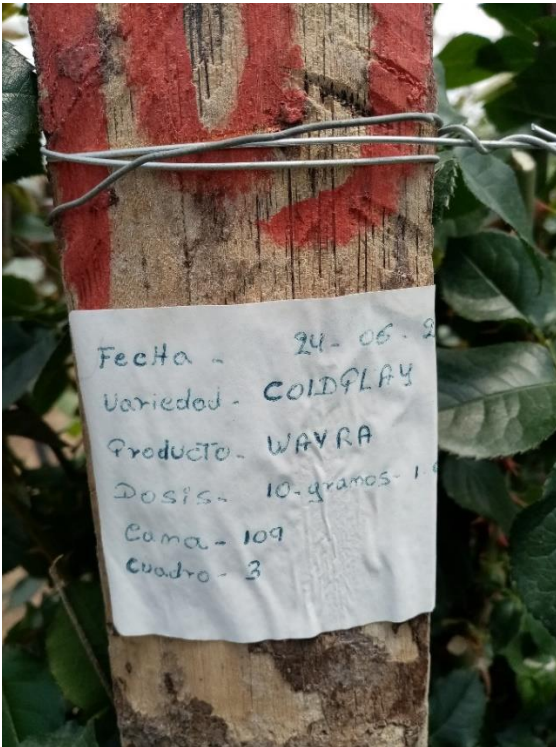 Fecha - 24 - 06 - 2
Variedad - COLDPLAY
Producto - WAYRA
Dosis - 10 - gramos - 1.
Cama - 109
Cuadro - 3